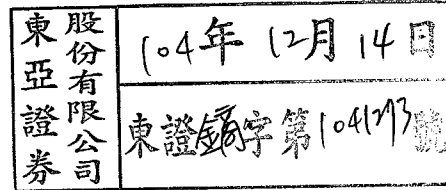 東亞證券
股份有限公司
104年12月14日
東證鏑字第1041293號